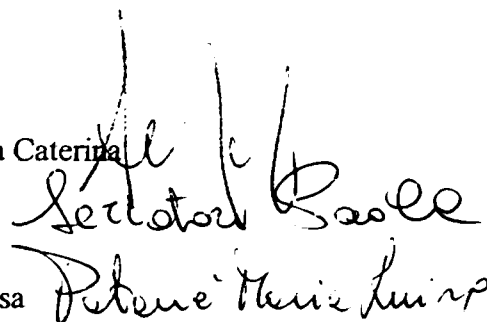 a Caterina
Serratori Paola
sa Patanè Maria Luisa